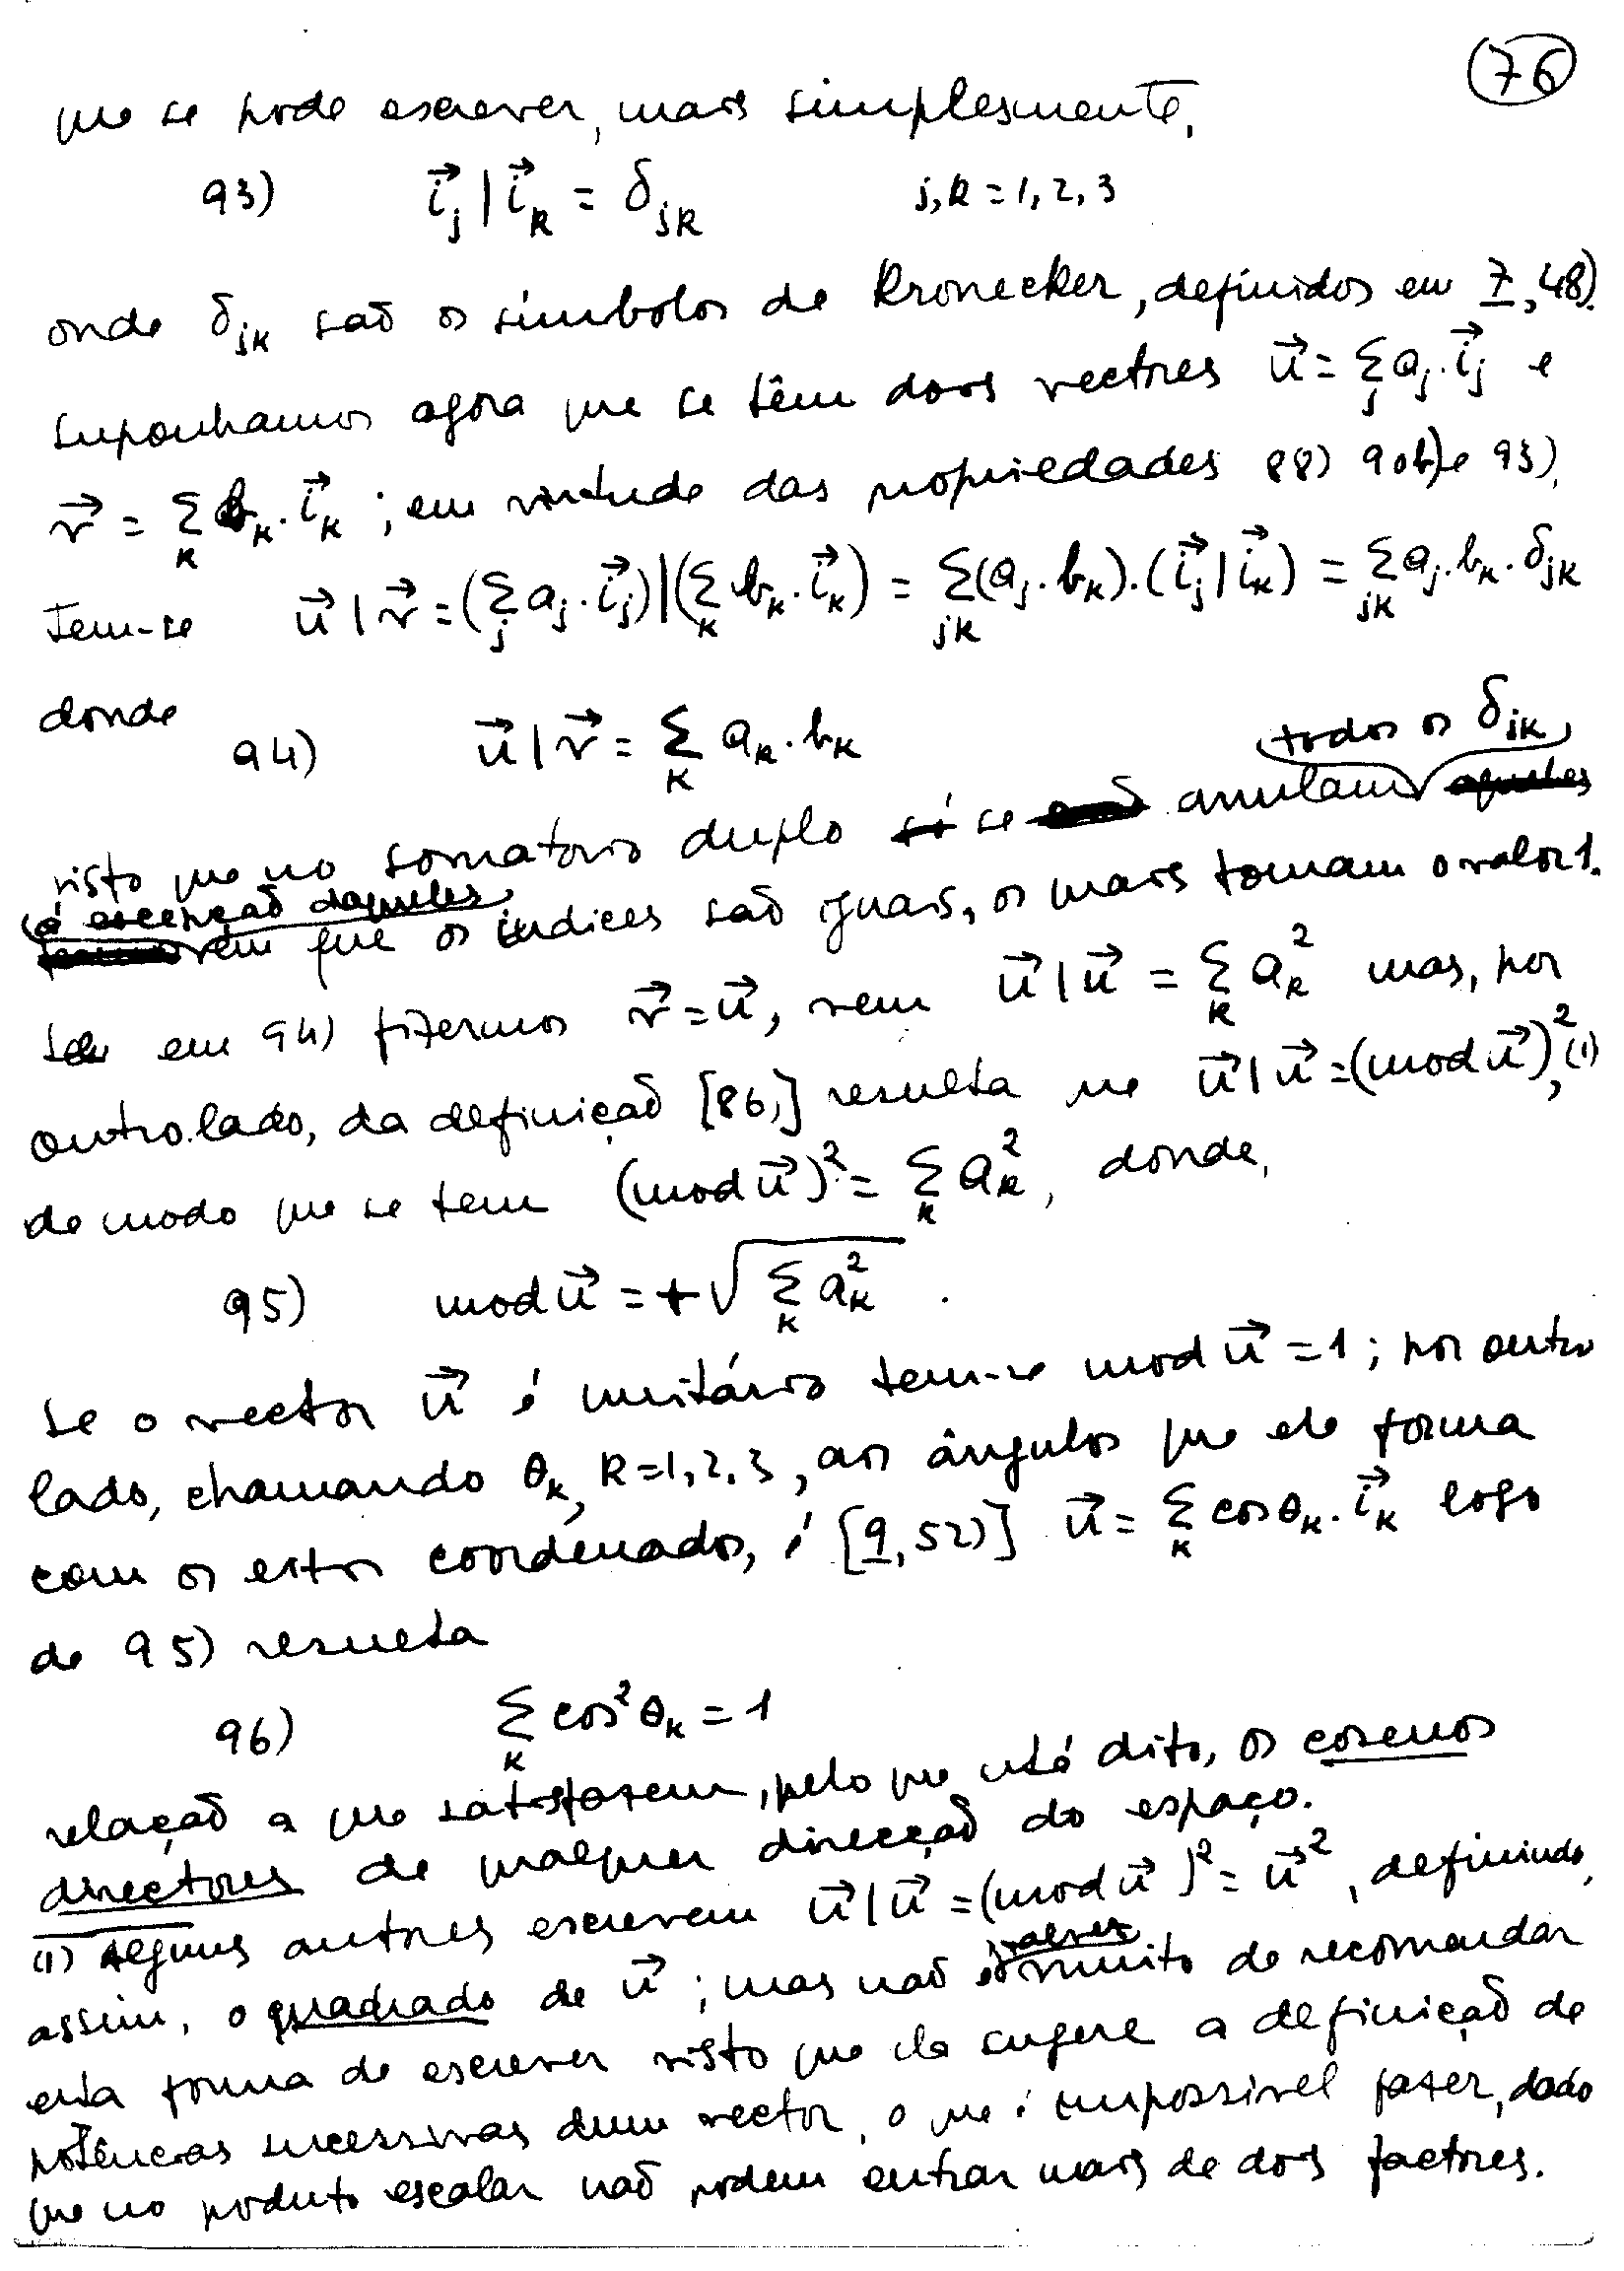 76
que se pode escrever, mais simplesmente,
93) $\vec{i}_j | \vec{i}_k = \delta_{jk}$ j,k = 1, 2, 3
onde $\delta_{jk}$ são os símbolos de Kronecker, definidos em 7, 48).
Suponhamos agora que se têm dois vectores $\vec{u} = \sum_j a_j . \vec{i}_j$ e
$\vec{v} = \sum_k b_k . \vec{i}_k$ ; em virtude das propriedades 88) 90b) e 93),
tem-se $\vec{u} | \vec{v} = (\sum_j a_j . \vec{i}_j) | (\sum_k b_k . \vec{i}_k) = \sum_{jk} (a_j . b_k) . (\vec{i}_j | \vec{i}_k) = \sum_{jk} a_j . b_k . \delta_{jk}$
donde
94) $\vec{u} | \vec{v} = \sum_k a_k . b_k$
visto que no somatório duplo se anulam todos os $\delta_{jk}$
à excepção daqueles em que os índices são iguais, os mais tomam o valor 1.
Se em 94) fizermos $\vec{v} = \vec{u}$, vem $\vec{u} | \vec{u} = \sum_k a_k^2$ mas, por
outro lado, da definição [86)] resulta que $\vec{u} | \vec{u} = (mod \vec{u})^2$, (1)
de modo que se tem $(mod \vec{u})^2 = \sum_k a_k^2$, donde,
95) $mod \vec{u} = + \sqrt{\sum_k a_k^2}$ .
Se o vector $\vec{u}$ é unitário tem-se $mod \vec{u} = 1$ ; por outro
lado, chamando $\theta_k$, k = 1, 2, 3, aos ângulos que ele forma
com os eixos coordenados, é [9, 52)] $\vec{u} = \sum_k cos \theta_k . \vec{i}_k$ logo
de 95) resulta
96) $\sum_k cos^2 \theta_k = 1$
relação a que satisfazem, pelo que está dito, os cosenos
directores de qualquer direcção do espaço.
(1) Alguns autores escrevem $\vec{u} | \vec{u} = (mod \vec{u})^2 = \vec{u}^2$, definindo,
assim, o quadrado de $\vec{u}$ ; mas não é muito de recomendar
esta forma de escrever visto que ela sugere a definição de
potências sucessivas dum vector, o que é impossível fazer, dado
que no produto escalar não podem entrar mais de dois factores.